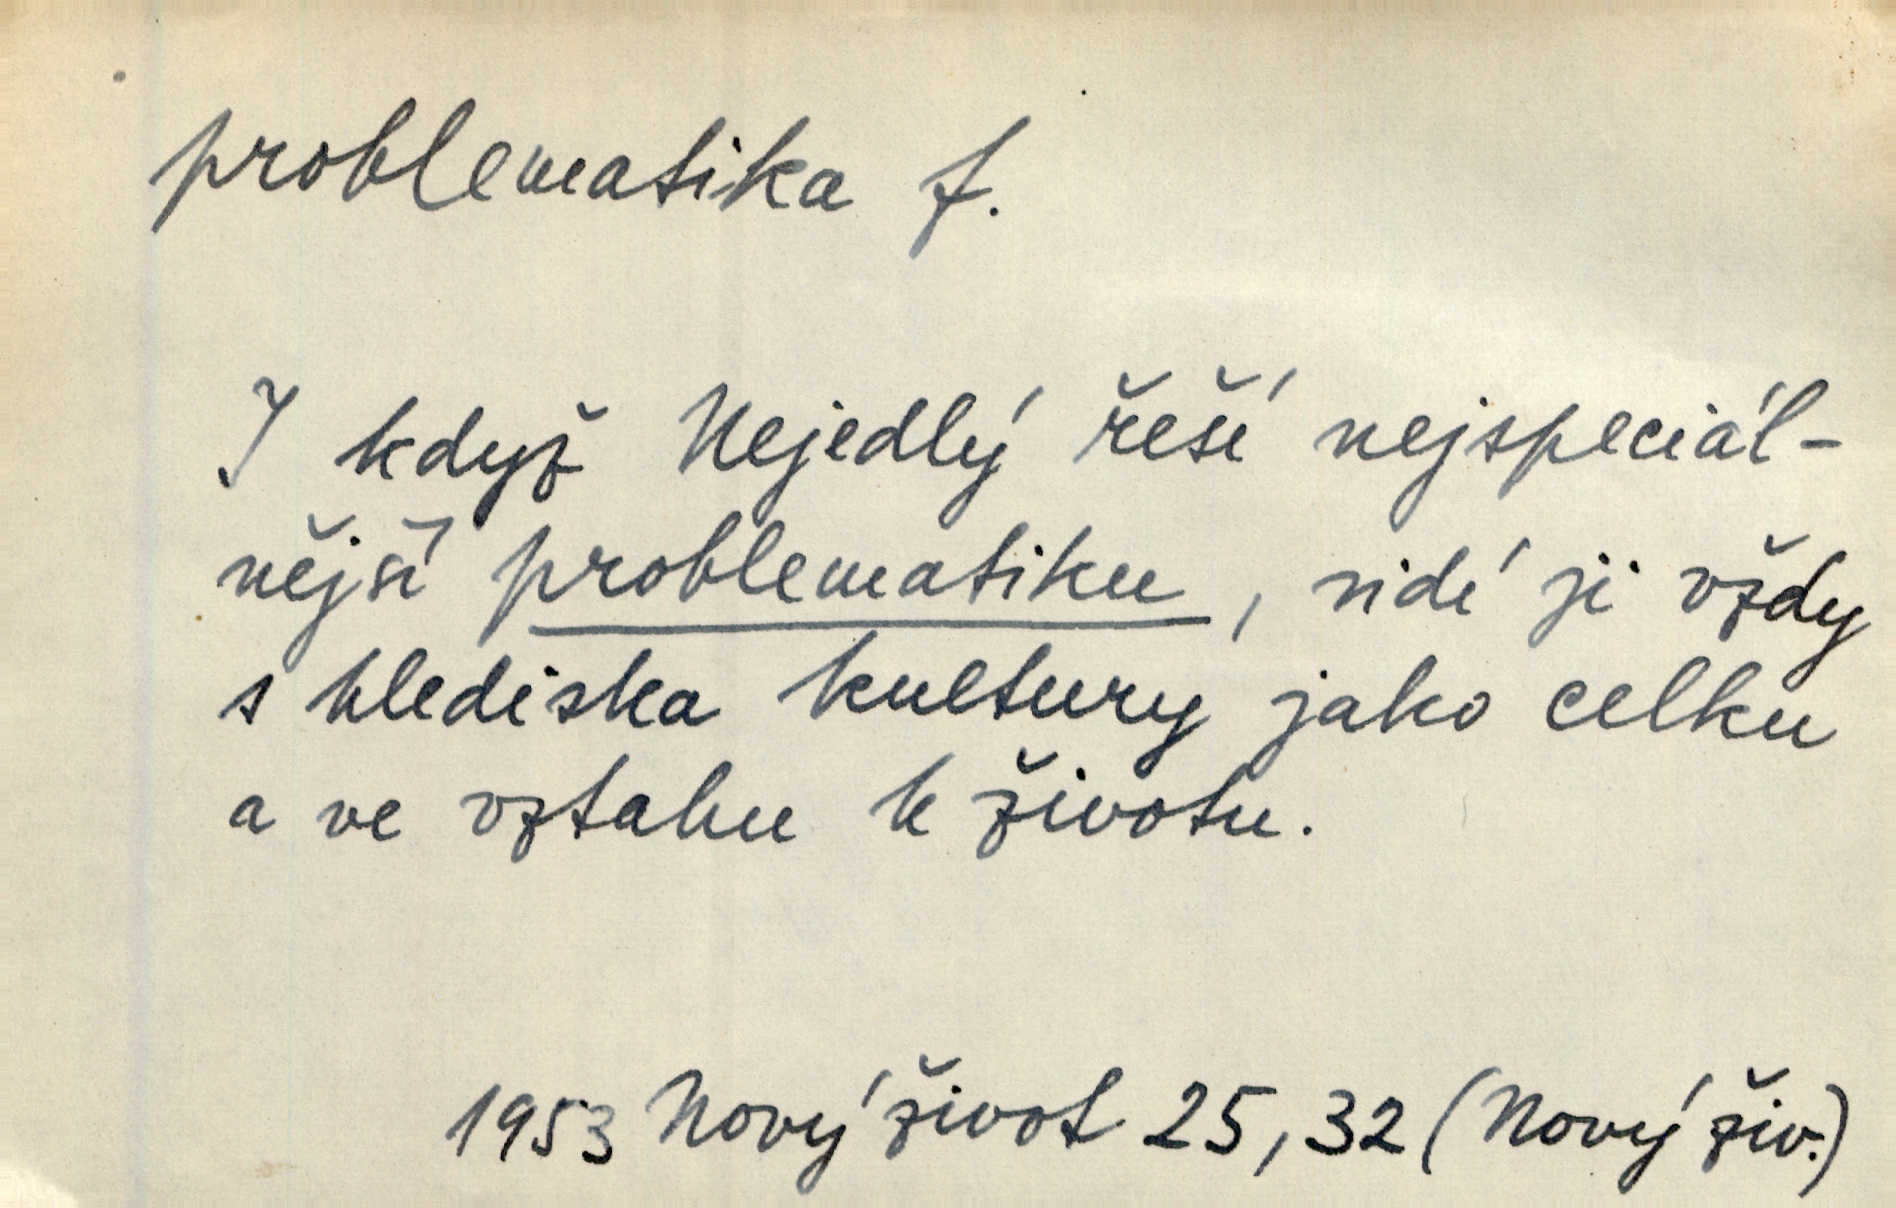 problematika f.
I když Nejedlý řeší nejspeciál-
nější problematiku, vidí ji vždy
s hlediska kultury jako celku
a ve vztahu k životu.
1953 Nový život 25, 32 (Nový živ.)